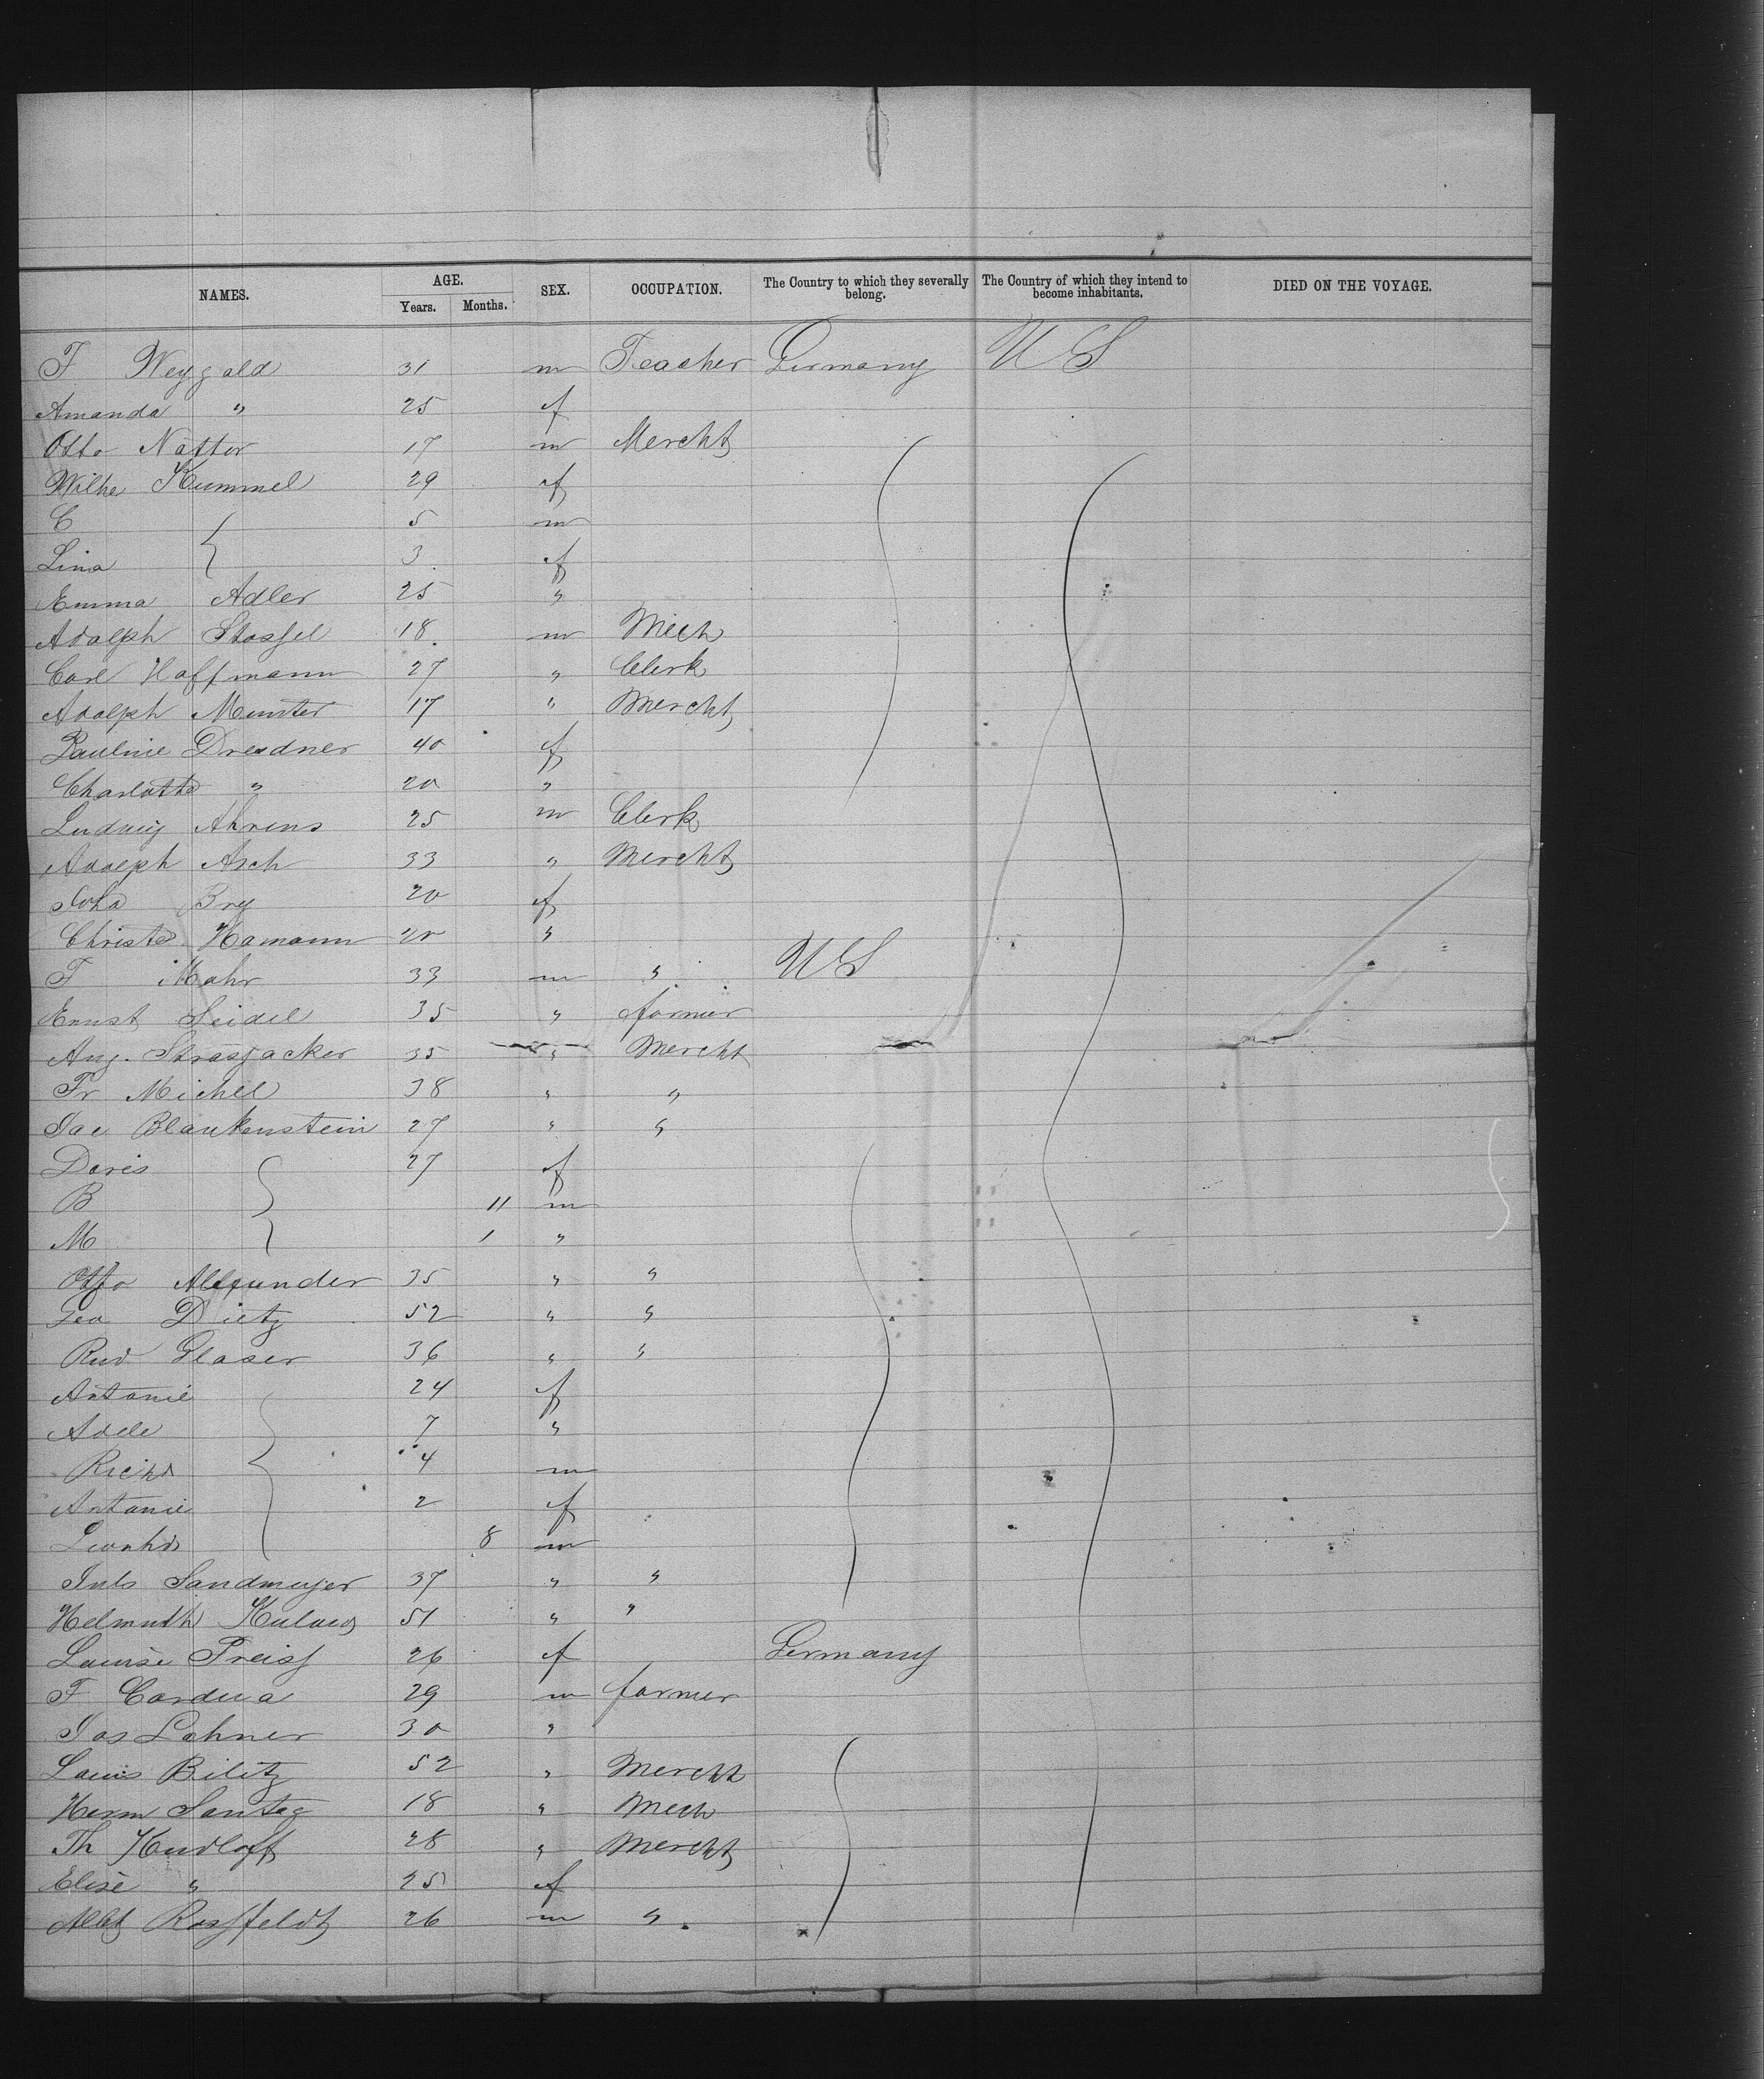 NAMES. AGE. Years. Months. SEX. OCCUPATION. The Country to which they severally belong. The Country of which they intend to become inhabitants. DIED ON THE VOYAGE.
F Weygold 31 m Teacher Germany U S
Amanda " 25 f
Otto Natter 17 m Mercht
Wilhe Kummel 29 f
C 5 m
Lina 3 f
Emma Adler 25 "
Adolph Stossel 18 m Mech
Carl Hoffmann 27 " Clerk
Adolph Munster 17 " Mercht
Pauline Dresdner 40 f
Charlotte " 20 "
Ludwig Ahrens 25 m Clerk
Adolph Asch 33 " Mercht
Bry 20 f
Christe Hamann 20 "
F Mahr 33 m " U S
Ernst Seidel 35 " farmer
Aug. Strassacker 35 " Mercht
Fr Michel 38 " "
Jac Blankenstein 27 " "
Doris 27 f
B 11 m
M 1 "
Otto Alexander 35 " "
Geo Dietz 52 " "
Rud Glaser 36 " "
Antonie 24 f
Adele 7 "
Richd 4 m
Antonie 2 f
Leonhd 8 m
Juls Sandmeyer 37 " "
Helmuth 51 " "
Louise Preiss 26 f Germany
F Cordua 29 m farmer
Jos Lohner 30 "
Louis Bilitz 52 " Mercht
Herm Sontag 18 " Mech
Th Kudloff 28 " Mercht
Elise " 25 f
Albt Rossfeldt 26 m "